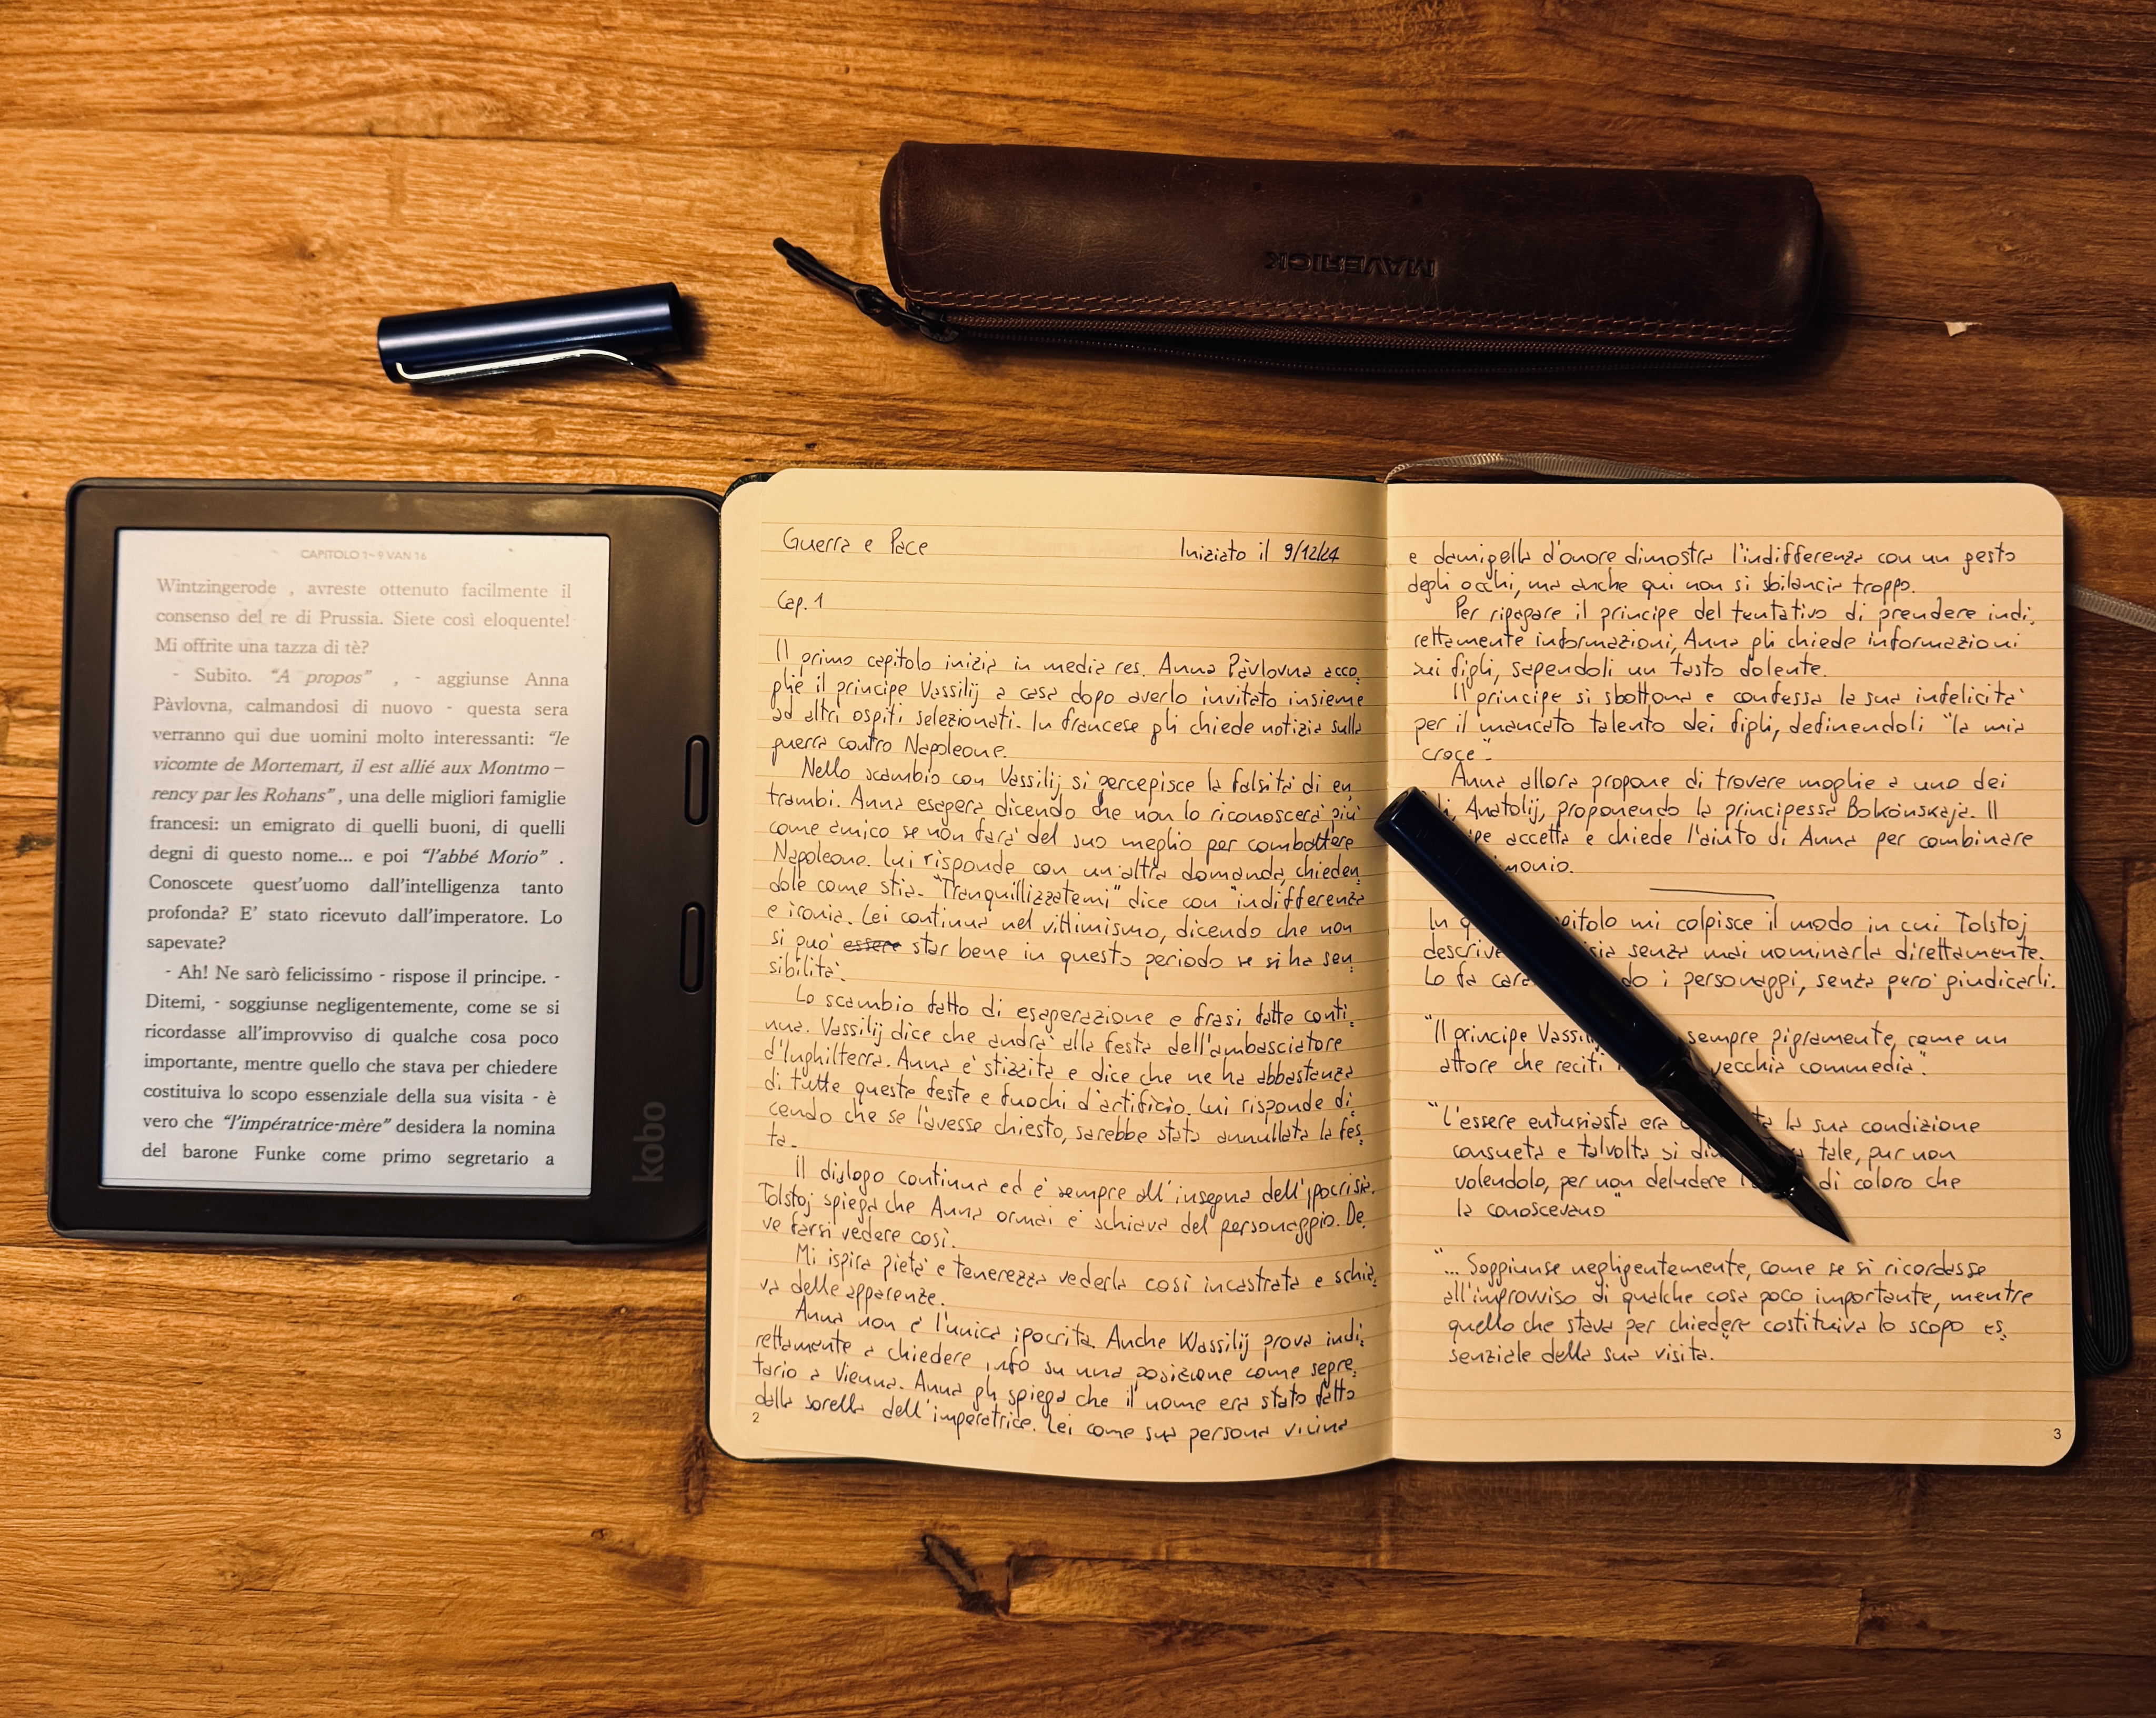 MAVERICK
CAPITOLO 1 - 9 VAN 16
Wintzingerode , avreste ottenuto facilmente il
consenso del re di Prussia. Siete così eloquente!
Mi offrite una tazza di tè?
- Subito. “A propos” , - aggiunse Anna
Pàvlovna, calmandosi di nuovo - questa sera
verranno qui due uomini molto interessanti: “le
vicomte de Mortemart, il est allié aux Montmo –
rency par les Rohans” , una delle migliori famiglie
francesi: un emigrato di quelli buoni, di quelli
degni di questo nome... e poi “l’abbé Morio” .
Conoscete quest’uomo dall’intelligenza tanto
profonda? E’ stato ricevuto dall’imperatore. Lo
sapevate?
- Ah! Ne sarò felicissimo - rispose il principe. -
Ditemi, - soggiunse negligentemente, come se si
ricordasse all’improvviso di qualche cosa poco
importante, mentre quello che stava per chiedere
costituiva lo scopo essenziale della sua visita - è
vero che “l’impératrice-mère” desidera la nomina
del barone Funke come primo segretario a
kobo
Guerra e Pace
Iniziato il 9/12/24
Cap. 1
Il primo capitolo inizia in media res. Anna Pàvlovna acco,
glie il principe Vassilij a casa dopo averlo invitato insieme
ad altri ospiti selezionati. In francese gli chiede notizia sulla
guerra contro Napoleone.
Nello scambio con Vassilij si percepisce la falsità di en,
trambi. Anna esagera dicendo che non lo riconoscerà più
come amico se non farà del suo meglio per combattere
Napoleone. Lui risponde con un'altra domanda, chieden,
dole come stia. "Tranquillizzatemi" dice con "indifferenza
e ironia. Lei continua nel vittimismo, dicendo che non
si può essere star bene in questo periodo se si ha sen,
sibilità.
Lo scambio fatto di esagerazione e frasi fatte conti,
nua. Vassilij dice che andrà alla festa dell'ambasciatore
d'Inghilterra. Anna è stizzita e dice che ne ha abbastanza
di tutte queste feste e fuochi d'artificio. Lui risponde di,
cendo che se l'avesse chiesto, sarebbe stata annullata la fes,
ta.
Il dialogo continua ed è sempre all'insegna dell'ipocrisia.
Tolstoj spiega che Anna ormai è schiava del personaggio. De,
ve farsi vedere così.
Mi ispira pietà e tenerezza vederla così incastrata e schia,
va delle apparenze.
Anna non è l'unica ipocrita. Anche Wassilij prova indi,
rettamente a chiedere info su una posizione come segre,
tario a Vienna. Anna gli spiega che il nome era stato fatto
dalla sorella dell'imperatrice. Lei come sua persona vicina
2
e damigella d'onore dimostra l'indifferenza con un gesto
degli occhi, ma anche qui non si sbilancia troppo.
Per ripagare il principe del tentativo di prendere indi,
rettamente informazioni, Anna gli chiede informazioni
sui figli, sapendoli un tasto dolente.
Il principe si sbottona e confessa la sua infelicità
per il mancato talento dei figli, definendoli "la mia
croce".
Anna allora propone di trovare moglie a uno dei
Anatolij, proponendo la principessa Bolkònskaja. Il
accetta e chiede l'aiuto di Anna per combinare
In mi colpisce il modo in cui Tolstoj
descrive senza mai nominarla direttamente.
Lo fa i personaggi, senza però giudicarli.
"Il principe sempre pigramente, come un
attore che reciti vecchia commedia".
"L'essere entusiasta era la sua condizione
consueta e talvolta si tale, pur non
volendolo, per non deludere di coloro che
la conoscevano"
"... Soggiunse negligentemente, come se si ricordasse
all'improvviso di qualche cosa poco importante, mentre
quello che stava per chiedere costituiva lo scopo es,
senziale della sua visita."
3